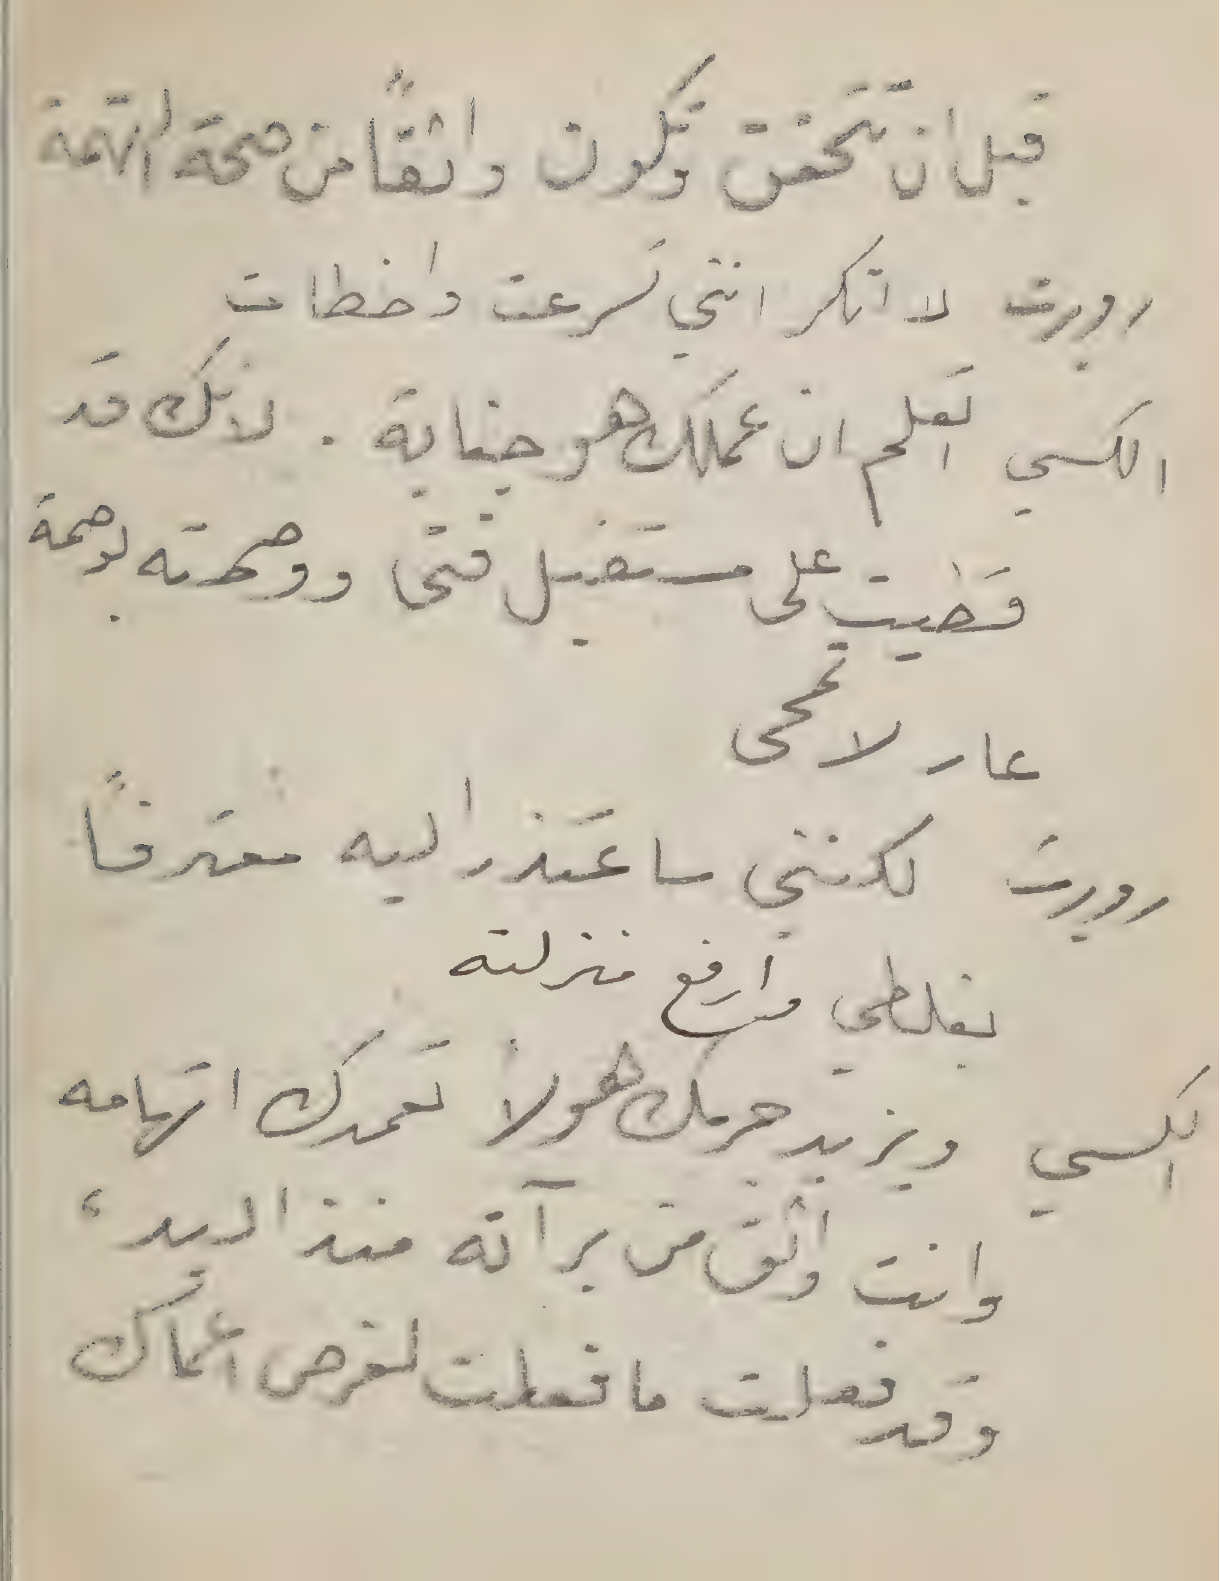 قبل ان تتحقق وتكون واثقاً من صحة التهمة
روبرت لا انكر انني تسرعت واخطات
الكسي اتعلم ان عملك هو جناية . لانك قد
قضيت على مستقبل فتى ووصمته بوصمة
عار لا تمحى
روبرت لكنني ساعتذر اليه معترفاً
بغلطي وارفع منزلته
الكسي ويزيد جرمك هولاً تعمدك اتهامه
وانت واثق من برآته منذ البدء
وقد فعلت ما فعلت لغرض اعماك